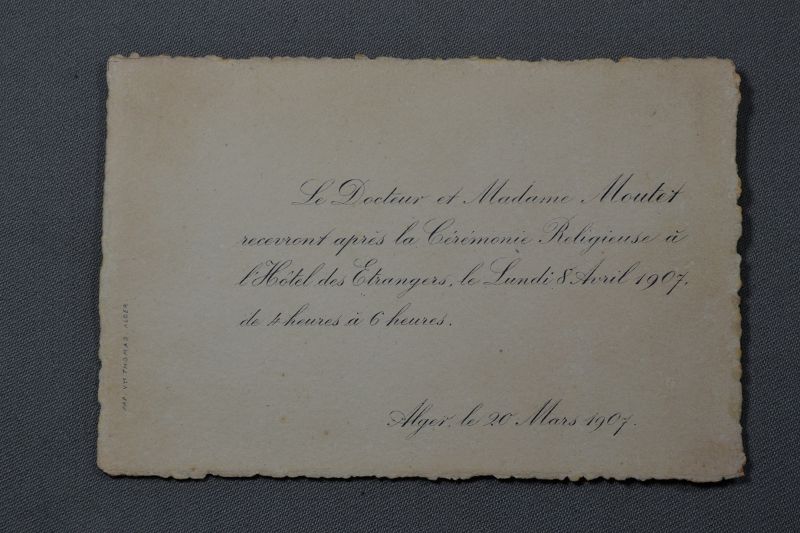 Le Docteur et Madame Moutet
recevront après la Cérémonie Religieuse à
l'Hôtel des Etrangers, le Lundi 8 Avril 1907,
de 4 heures à 6 heures.
Alger, le 20 Mars 1907.
PAP. VM THOMAS ALGER